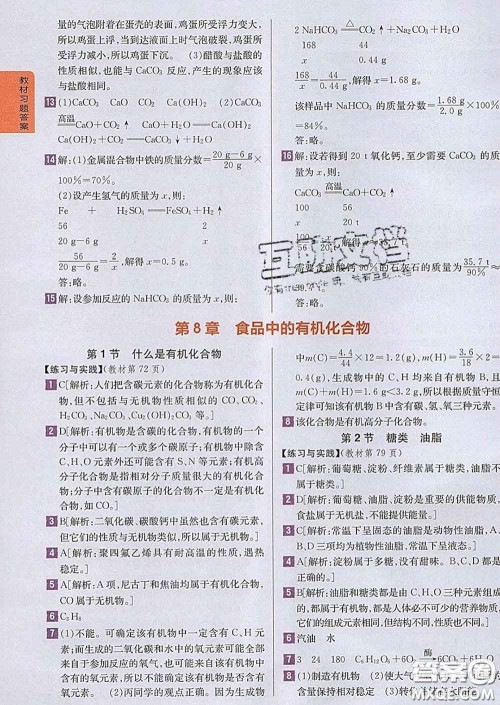 教材习题答案
量的气泡附着在蛋壳的表面,鸡蛋所受浮力变大,
所以鸡蛋上浮。当到达液面时气泡破裂,鸡蛋所
受浮力减小,所以鸡蛋下沉。(3)醋酸与盐酸的
性质相似,也能与 CaCO₃ 反应,产生的现象应该
与盐酸相同。
13 (1)CaCO₃ 高温 CaO+CO₂↑ (2)
CaO+H₂O=Ca(OH)₂
14 解:(1)金属混合物中铁的质量分数=(20 g-6 g)/20 g×
100%=70%。
(2)设产生氢气的质量为 x,则:
Fe + H₂SO₄=FeSO₄+H₂↑
56 2
20 g-6 g x
56/(20 g-6 g)=2/x,解得 x=0.5 g。
答:略。
15 解:设参加反应的 NaHCO₃ 的质量为 x,则:
2 NaHCO₃ △ CO₂↑+Na₂CO₃+H₂O
168 44
x
168/x=44/,解得:x=1.68 g。
该样品中 NaHCO₃ 的质量分数=1.68 g/2.0 g×100%
=84%。
答:略。
16 解:设若得到 20 t 氧化钙,至少需要 CaCO₃ 的质量为
x,则:
CaCO₃ 高温 CaO+CO₂↑
100 56
x 20 t
100/56=x/20 t,解得 x=35.7 t
需要含碳酸钙90%的石灰石的质量=35.7 t/90%≈
答:略。
第 8 章 食品中的有机化合物
第 1 节 什么是有机化合物
【练习与实践】(教材第 72 页)
1 C[解析:人们把含碳元素的化合物称为有机化合
物,但不包括与无机物性质相似的 CO、CO₂、
H₂CO₃、Na₂CO₃、CuCO₃、Cu₂(OH)₂CO₃等。]
2 D[解析:有机物是含碳的化合物,有机物的一个
分子中可以有一个或多个碳原子;有机物中除含
C、H、O 元素外还可能含有 S、N 等元素;有机高
分子化合物是指相对分子质量很大的有机化合
物;分子中含有碳原子的化合物不一定是有机化
合物,如 CO。]
3 B[解析:二氧化碳、碳酸钙中虽然也含有碳元素,
但它们的性质与无机物类似,所以属于无机物。]
4 A[解析:聚四氟乙烯具有耐高温的性质,遇热
稳定。]
5 A[解析:A 项,尼古丁和焦油均属于有机化合物。]
6 C₂H₆
7 (1)不能。可确定该有机物中一定含有 C、H 元
素;而生成的二氧化碳和水中的氧元素可能全部
来自于参加反应的氧气,也可能来自有机物和参
加反应的氧气,所以不能确定该有机物中是否含
有氧元素。 (2)丙同学的观点正确。因生成物
中 m(C)=4.4/44×12=1.2(g),m(H)=3.6/18×2=
0.4(g),生成物中的 C、H 均来自有机物 B,且
m(C)+m(H)=1.6 g<3.2 g,所以根据质量守恒
定律可知该有机物 B 中含有碳、氢、氧三种元素。
8 该化合物是有机高分子化合物。
第 2 节 糖类 油脂
【练习与实践】(教材第 79 页)
1 C[解析:葡萄糖、淀粉、纤维素属于糖类,
2 D[解析:葡萄糖、油脂、淀粉是重要的供能物质,
食盐属于无机盐,不能提供能量。]
3 C[解析:常温下呈固态的油脂是动物性油脂,A、
B、D三项均为植物性油脂,常温下呈液态。]
4 A[解析:淀粉属于多糖,A 项错误。]
5 C[解析:油脂和糖类都是由 C、H、O 三种元素组成
的,都属于有机物,都是人体必不可少的营养物质,
但它们的组成元素的质量比不同,
6 汽油 水
7 3 24 180 C₆H₁₂O₆+6O₂ 酶 6CO₂
8 (1)制造有机物 (2)使大气
含量保持相对稳定 (3)转化